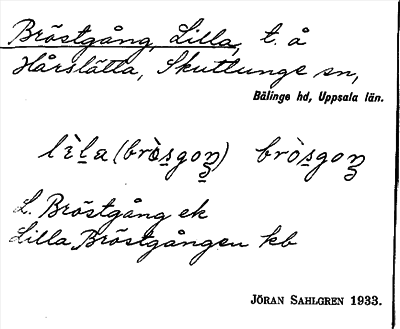 Bröstgång, Lilla, t. å
Hårslätta, Skutlunge sn,
Bälinge hd, Uppsala län.
lìla (bròsgoŋ) bròsgoŋ
L. Bröstgång ek
Lilla Bröstgången kb
JÖRAN SAHLGREN 1933.